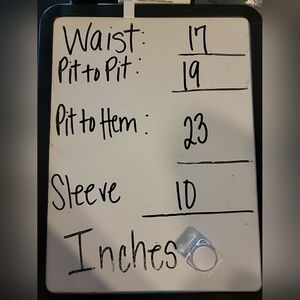 Waist: 17
Pit to Pit: 19
Pit to Hem: 23
Sleeve 10
Inches